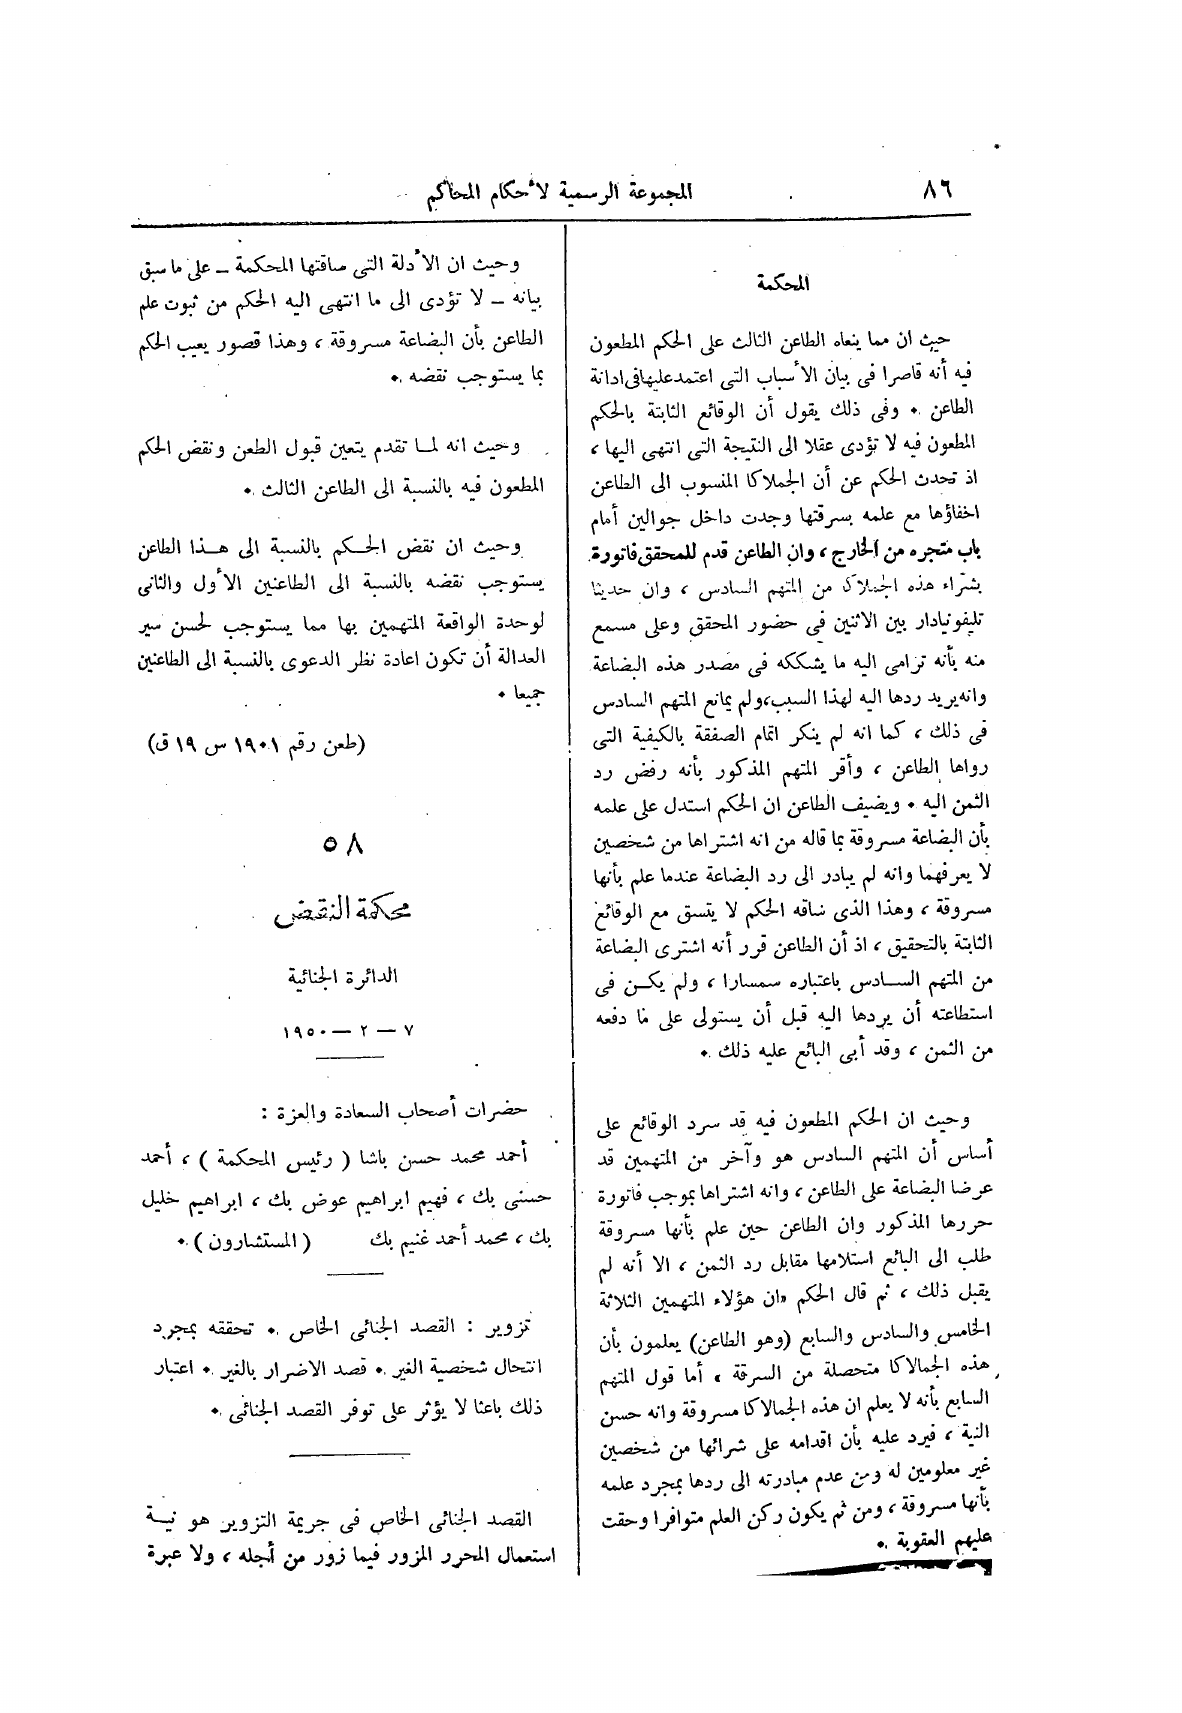 ٨٦
المجموعة الرسمية لأحكام المحاكم
المحكمة
حيث ان مما ينعاه الطاعن الثالث على الحكم المطعون
فيه أنه قاصرا فى بيان الأسباب التى اعتمد عليها فى ادانة
الطاعن ٠ وفى ذلك يقول أن الوقائع الثابتة بالحكم
المطعون فيه لا تؤدى عقلا الى النتيجة التى انتهى اليها ،
اذ تحدث الحكم عن أن الجملاكا المنسوب الى الطاعن
اخفاؤها مع علمه بسرقتها وجدت داخل جوالين أمام
باب متجره من الخارج ، وان الطاعن قدم للمحقق فاتورة
بشراء هذه الجملاكا من المتهم السادس ، وان حديثا
تليفونيا دار بين الاثنين فى حضور المحقق وعلى مسمع
منه بأنه ترامى اليه ما يشككه فى مصدر هذه البضاعة
وانه يريد ردها اليه لهذا السبب، ولم يمانع المتهم السادس
فى ذلك ، كما انه لم ينكر اتمام الصفقة بالكيفية التى
رواها الطاعن ، وأقر المتهم المذكور بأنه رفض رد
الثمن اليه ٠ ويضيف الطاعن ان الحكم استدل على علمه
بأن البضاعة مسروقة بما قاله من انه اشتراها من شخصين
لا يعرفهما وانه لم يبادر الى رد البضاعة عندما علم بأنها
مسروقة ، وهذا الذى ساقه الحكم لا يتسق مع الوقائع
الثابتة بالتحقيق ، اذ أن الطاعن قرر أنه اشترى البضاعة
من المتهم الســادس باعتباره سمسارا ، ولم يكــن فى
استطاعته أن يردها اليه قبل أن يستولى على ما دفعه
من الثمن ، وقد أبى البائع عليه ذلك ٠
وحيث ان الحكم المطعون فيه قد سرد الوقائع على
أساس أن المتهم السادس هو وآخر من المتهمين قد
عرضا البضاعة على الطاعن ، وانه اشتراها بموجب فاتورة
حررها المذكور وان الطاعن حين علم بأنها مسروقة
طلب الى البائع استلامها مقابل رد الثمن ، الا أنه لم
يقبل ذلك ، ثم قال الحكم «ان هؤلاء المتهمين الثلاثة
الخامس والسادس والسابع (وهو الطاعن) يعلمون بأن
هذه الجمالاكا متحصلة من السرقة ، أما قول المتهم
السابع بأنه لا يعلم ان هذه الجمالاكا مسروقة وانه حسن
النية ، فيرد عليه بأن اقدامه على شرائها من شخصين
غير معلومين له ومن عدم مبادرته الى ردها بمجرد علمه
بأنها مسروقة ، ومن ثم يكون ركن العلم متوافرا وحقت
عليهم العقوبة ٠
وحيث ان الأدلة التى ساقتها المحكمة ــ على ما سبق
بيانه ــ لا تؤدى الى ما انتهى اليه الحكم من ثبوت علم
الطاعن بأن البضاعة مسروقة ، وهذا قصور يعيب الحكم
بما يستوجب نقضه ٠
وحيث انه لمــا تقدم يتعين قبول الطعن ونقض الحكم
المطعون فيه بالنسبة الى الطاعن الثالث ٠
وحيث ان نقض الحــكم بالنسبة الى هــذا الطاعن
يستوجب نقضه بالنسبة الى الطاعنين الأول والثانى
لوحدة الواقعة المتهمين بها مما يستوجب لحسن سير
العدالة أن تكون اعادة نظر الدعوى بالنسبة الى الطاعنين
جميعا ٠
(طعن رقم ١٩٠١ س ١٩ ق)
٥٨
محكمة النقض
الدائرة الجنائية
٧ — ٢ — ١٩٥٠
حضرات أصحاب السعادة والعزة :
أحمد محمد حسن باشا ( رئيس المحكمة ) ، أحمد
حسنى بك ، فهيم ابراهيم عوض بك ، ابراهيم خليل
بك ، محمد أحمد غنيم بك ( المستشارون ) ٠
تزوير : القصد الجنائى الخاص ٠ تحققه بمجرد
انتحال شخصية الغير ٠ قصد الاضرار بالغير ٠ اعتبار
ذلك باعثا لا يؤثر على توفر القصد الجنائى ٠
القصد الجنائى الخاص فى جريمة التزوير هو نيــة
استعمال المحرر المزور فيما زور من أجله ، ولا عبرة